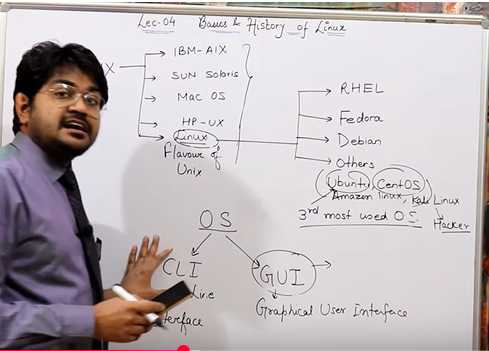 Lec-04 Basics & History of Linux
IBM-AIX
SUN Solaris
Mac OS
HP-UX
Linux
Flavour of
Unix
RHEL
Fedora
Debian
Others
Ubuntu, CentOS
Amazon linux, Kali Linux
3rd most used OS
Hacker
OS
CLI
GUI
Graphical User Interface